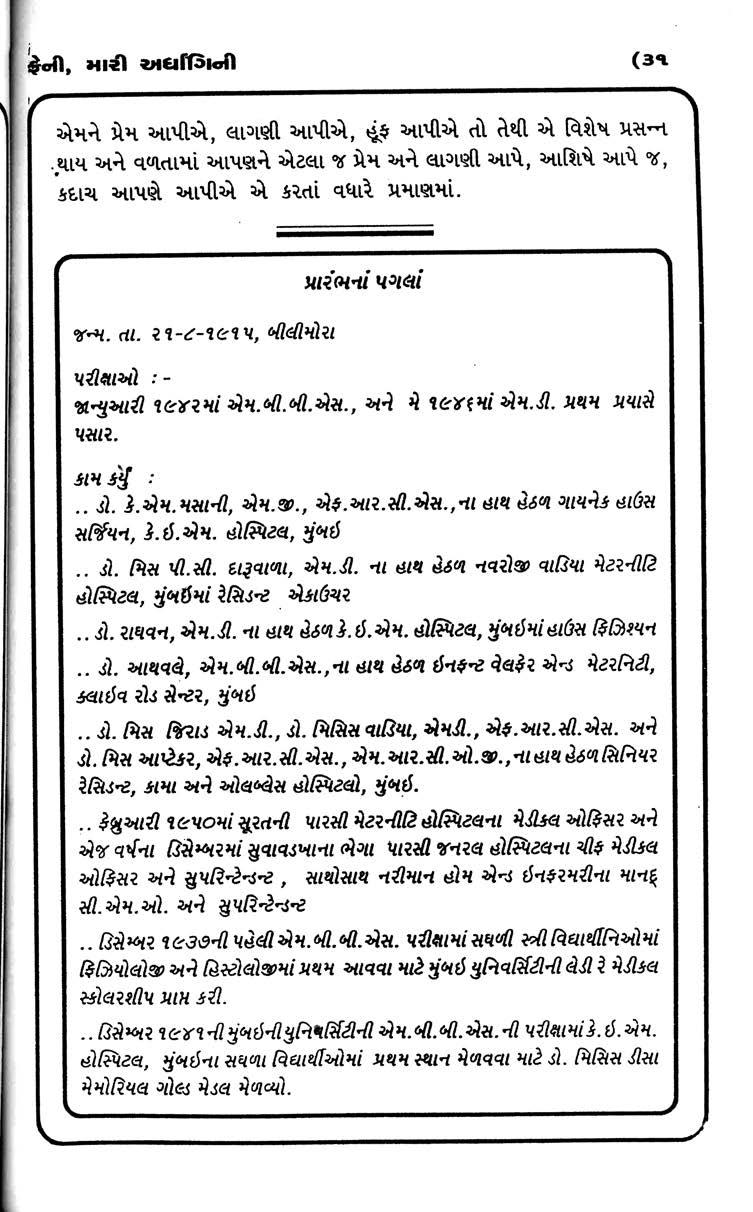 ફ્રેની, મારી અર્ધાંગિની
(૩૧
એમને પ્રેમ આપીએ, લાગણી આપીએ, હૂંફ આપીએ તો તેથી એ વિશેષ પ્રસન્ન
થાય અને વળતામાં આપણને એટલા જ પ્રેમ અને લાગણી આપે, આશિષે આપે જ,
કદાચ આપણે આપીએ એ કરતાં વધારે પ્રમાણમાં.
પ્રારંભનાં પગલાં
જન્મ. તા. ૨૧-૮-૧૯૧૫, બીલીમોરા
પરીક્ષાઓ : -
જાન્યુઆરી ૧૯૪૨માં એમ.બી.બી.એસ., અને મે ૧૯૪૬માં એમ.ડી. પ્રથમ પ્રયાસે
પસાર.
કામ કર્યું :
.. ડો. કે.એમ.મસાની, એમ.જી., એફ.આર.સી.એસ.,ના હાથ હેઠળ ગાયનેક હાઉસ
સર્જિયન, કે.ઇ.એમ. હોસ્પિટલ, મુંબઇ
.. ડો. મિસ પી.સી. દારૂવાળા, એમ.ડી. ના હાથ હેઠળ નવરોજી વાડિયા મેટરનીટિ
હોસ્પિટલ, મુંબઇમાં રેસિડન્ટ એકાઉચર
.. ડો. રાઘવન, એમ.ડી. ના હાથ હેઠળ કે.ઇ.એમ. હોસ્પિટલ, મુંબઇમાં હાઉસ ફિઝિશ્યન
.. ડો. આથવલે, એમ.બી.બી.એસ.,ના હાથ હેઠળ ઇનફન્ટ વેલફેર એન્ડ મેટરનિટી,
ક્લાઇવ રોડ સેન્ટર, મુંબઇ
.. ડો. મિસ જિરાડ એમ.ડી., ડો. મિસિસ વાડિયા, એમડી., એફ.આર.સી.એસ. અને
ડો. મિસ આપ્ટેકર, એફ.આર.સી.એસ., એમ.આર.સી.ઓ.જી.,ના હાથ હેઠળ સિનિયર
રેસિડન્ટ, કામા અને ઓલબ્લેસ હોસ્પિટલો, મુંબઇ.
.. ફેબ્રુઆરી ૧૯૫૦માં સૂરતની પારસી મેટરનીટિ હોસ્પિટલના મેડીકલ ઓફિસર અને
એજ વર્ષના ડિસેમ્બરમાં સુવાવડખાના ભેગા પારસી જનરલ હોસ્પિટલના ચીફ મેડીકલ
ઓફિસર અને સુપરિન્ટેન્ડન્ટ , સાથોસાથ નરીમાન હોમ એન્ડ ઇનફરમરીના માનદ્
સી.એમ.ઓ. અને સુપરિન્ટેન્ડન્ટ
.. ડિસેમ્બર ૧૯૩૭ની પહેલી એમ.બી.બી.એસ. પરીક્ષામાં સઘળી સ્ત્રી વિદ્યાર્થીનિઓમાં
ફિઝિયોલોજી અને હિસ્ટોલોજીમાં પ્રથમ આવવા માટે મુંબઇ યુનિવર્સિટીની લેડી રે મેડીકલ
સ્કોલરશીપ પ્રાપ્ત કરી.
.. ડિસેમ્બર ૧૯૪૧ની મુંબઇની યુનિવર્સિટીની એમ.બી.બી.એસ.ની પરીક્ષામાં કે.ઇ.એમ.
હોસ્પિટલ, મુંબઇના સઘળા વિદ્યાર્થીઓમાં પ્રથમ સ્થાન મેળવવા માટે ડો. મિસિસ ડીસા
મેમોરિયલ ગોલ્ડ મેડલ મેળવ્યો.